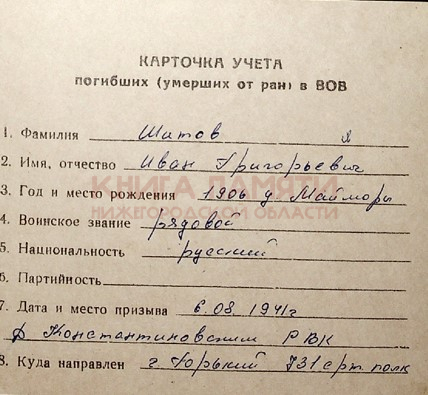 КАРТОЧКА УЧЕТА
погибших (умерших от ран) в ВОВ
1. Фамилия Шатов
2. Имя, отчество Иван Григорьевич
КНИГА ПАМЯТИ
3. Год и место рождения 1906 д. Майморы
НИЖЕГОРОДСКОЙ ОБЛАСТИ
4. Воинское звание рядовой
5. Национальность русский
6. Партийность
7. Дата и место призыва 6.08.1941г
Константиновским РВК
8. Куда направлен г. Горький 731 арт полк